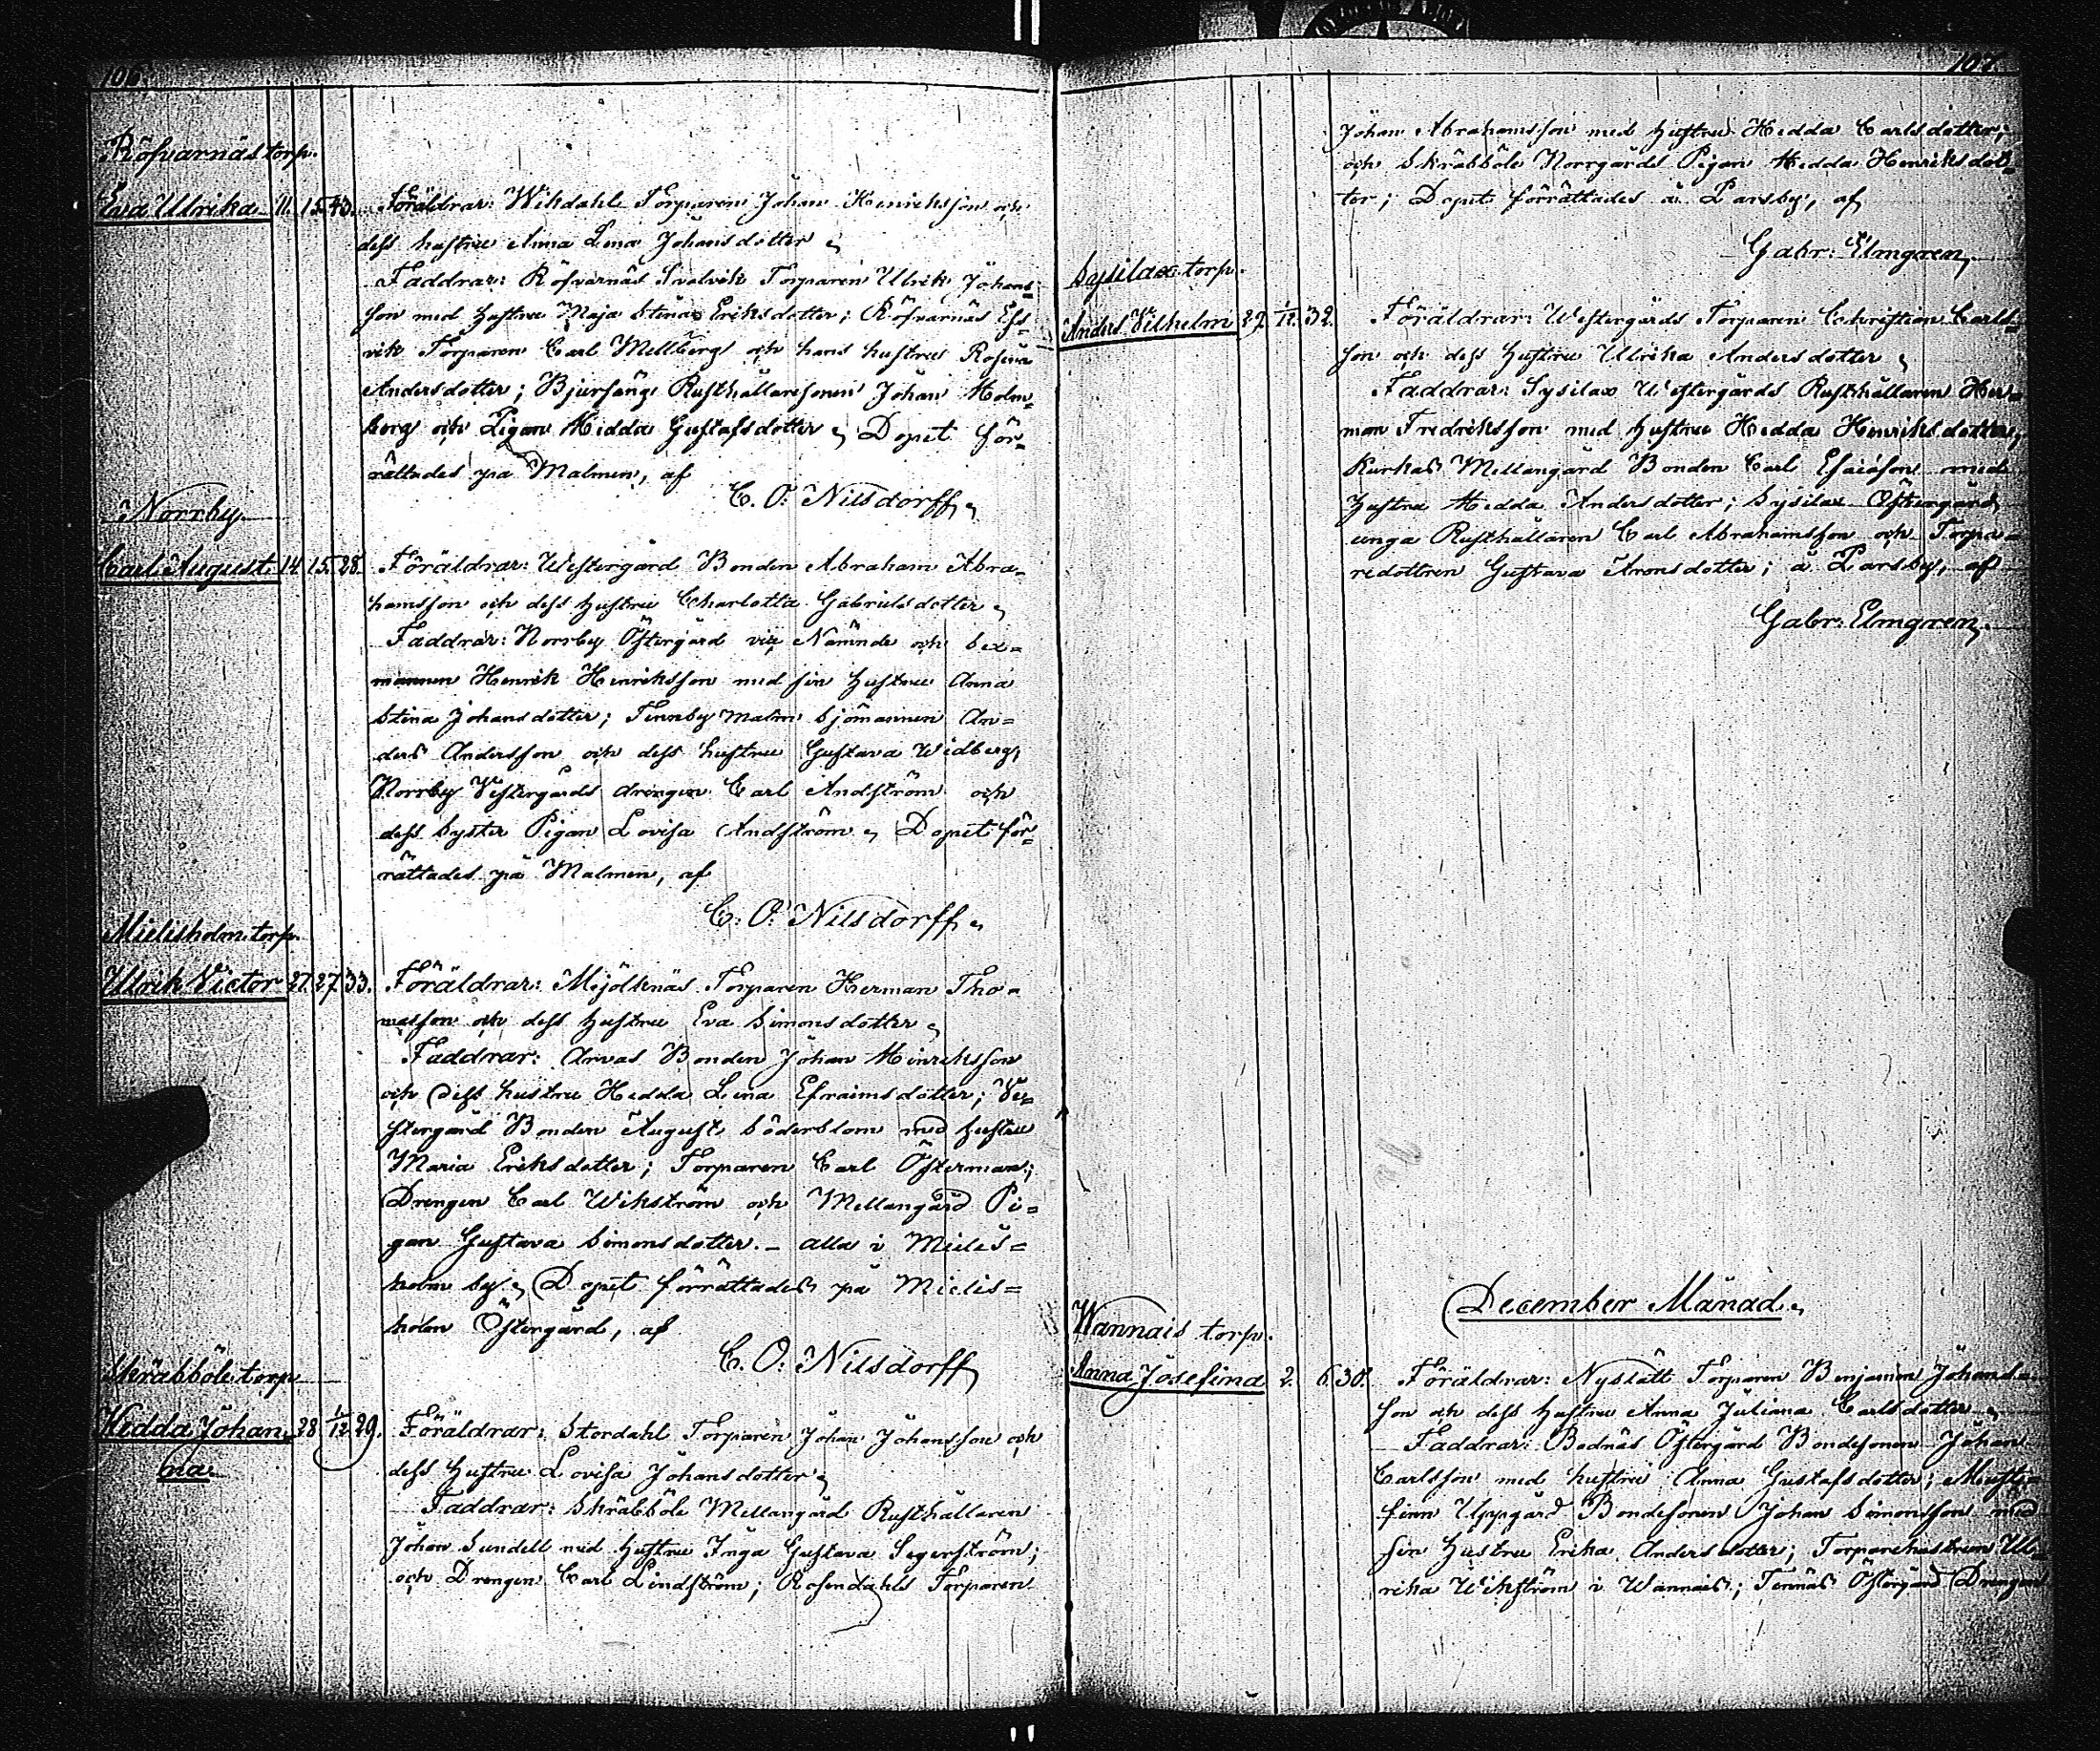 106.
Röfvarnäs torp.
Eva Ulrika 11. 15. 40. Föräldrar: Wikdahls Torparen Johan Henriksson och
dess hustru Anna Lena Johansdotter,
Faddrar: Röfvarnäs Svalvik Torparen Ulrik Johans=
son med hustru Maja Stina Eriksdotter; Röfvarnäs Ess=
vik Torparen Carl Mellberg och hans hustru Rosina
Andersdotter; Bjursäng Rusthållaresonen Johan Holm=
berg och Pigan Hedda Gustafsdotter, Dopet för=
rättades på Malmen, af
C. O. Nilsdorff,
Norrby
Carl August. 14. 15. 28. Föräldrar: Westergård Bonden Abraham Abra=
hamsson och dess hustru Charlotta Gabrielsdotter,
Faddrar: Norrby Östergård vice Nämnde och Sex=
mannen Henrik Henriksson med sin hustru Anna
Stina Johansdotter; Finnby Malm Sjömannen An=
ders Andersson och dess hustru Gustava Widberg,
Norrby Vestergårds drängen Carl Andström och
dess Syster Pigan Lovisa Andström, Dopet för=
rättades på Malmen, af
C. O. Nilsdorff,
Mielisholm torp.
Ulrik Victor 27. 27. 33. Föräldrar: Mjölknäs Torparen Herman Tho=
masson och dess hustru Eva Simonsdotter,
Faddrar: Arvas Bonden Johan Hinriksson
och dess hustru Hedda Lena Efraimsdotter; Ve=
stergård Bonden August Söderblom med hustru
Maria Eriksdotter; Torparen Carl Österman;
Drengen Carl Wikström och Mellangård Pi=
gan Gustava Simonsdotter. – alla i Mielis=
holm by, Dopet förrättades på Mielis=
holm Östergård, af
C. O. Nilsdorff,
Skräbböle torp
Hedda Johan= 28 1/12 29. Föräldrar: Stordahl Torparen Johan Johansson och
na. dess hustru Lovisa Johansdotter,
Faddrar: Skräbböle Mellangård Rusthållaren
Johan Sundell med hustru Inga Gustava Segerström;
och Drengen Carl Lindström; Rosendahls Torparen
107.
Johan Abrahamsson med hustru Hedda Carlsdotter;
och Skräbböle Norrgårds Pigan Hedda Henriksdot=
ter; Dopet förrättades å Parsby, af
Gabr: Elmgren,
Sysilax torp.
Anders Vilhelm 29. 1/12. 32. Föräldrar: Westergårds Torparen Christian Carls=
son och dess hustru Ulrika Andersdotter,
Faddrar: Sysilax Westergårds Rusthållaren Her=
man Fredriksson med hustru Hedda Henriksdotter,
Kurkas Mellangård Bonden Carl Esaiason med
hustru Hedda Andersdotter; Sysilax Östergård
unga Rusthållaren Carl Abrahamsson och Torpa=
redottren Gustava Aronsdotter; å Parsby, af
Gabr: Elmgren.
December Månad,
Wannais torp.
Anna Josefina 2. 6. 30. Föräldrar: Nyslätt Torparen Benjamin Johans=
son och dess hustru Anna Juliana Carlsdotter,
Faddrar: Bodnäs Östergård Bondesonen Johan
Carlsson med hustru Anna Gustafsdotter; Must=
finn Uppgård Bondesonen Johan Simonsson med
sin hustru Erika Andersdotter; Torparehustrun Ul=
rika Wikström i Wannais; Tennäs Östergård Drengen